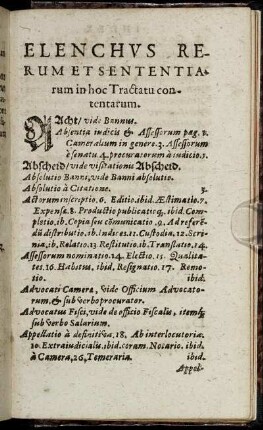 ELENCHVS RE-
RUM ET SENTENTIA-
rum in hoc Tractatu con-
tentarum.
Acht/ vide Bannus.
Absentia iudicis & Assessorum pag. 2.
Cameralium in genere. 3. Assessorum
è senatu 4. procuratorum à indicio. 5.
Abscheid/ vide visitationis Abscheid.
Absolutio Banni, vide Banni absolutio.
Absolutio à Citatione. 5.
Actorum inscriptio. 6. Editio. ibid. Æstimatio. 7.
Expensæ. 8. Productio publicatioq;. ibid. Com-
plotio. ib. Copia seu cõmunicatio. 9. Ad refe-
dũ distributio. ib. Indices. 11. Custodia, 12. Scri-
nia, ib. Relatio. 13 Restitutio. ib. Translatio. 14.
Assessorum nominatio. 14. Electio. 15. Qualita-
tes. 16. Habitus. ibid. Resignatio. 17. Remo-
tio. ibid.
Advocati Camera, vide Officium Advocato-
rum, & sub verbo procurator.
Advocatus Fisci, vide de officio Fiscalis, item
sub verbo Salarium.
Appellatio à definitiva, 18. Ab interlocutoria.
20. Extraiudicialis. ibid. coram. Notario. ibid.
à Camera, 26, Temeraria. ibid.
Appel-